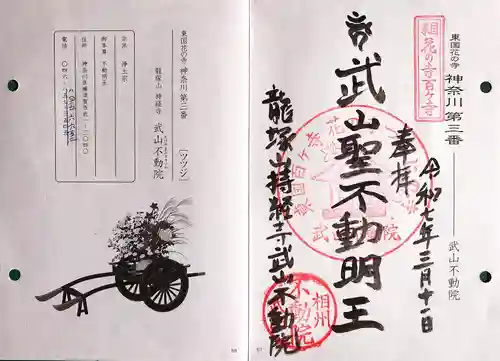 東国花の寺
神奈川 第三番
武山不動院
東国花の寺百ケ寺
奉拝
令和七年三月十一日
武山聖不動明王
龍塚山持経寺武山不動院
相州
不動院
東国花の寺 神奈川 第三番 [ツツジ]
龍塚山 持経寺 武山不動院
宗派 浄土宗
御本尊 不動明王
住所 神奈川県横須賀市武
電話 〇四六